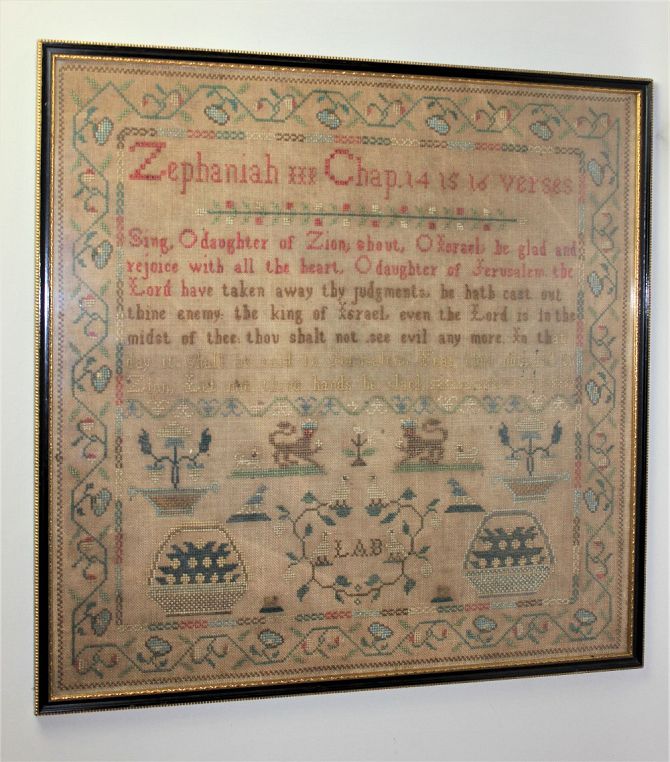 Zephaniah III Chap. 14 15 16 verses
Sing, O daughter of Zion, shout, O Israel, be glad and
rejoice with all the heart, O daughter of Jerusalem. the
Lord have taken away thy judgments, he hath cast out
thine enemy: the king of Israel, even the Lord is in the
midst of thee: thou shalt not see evil any more. In that
day it shall be said to Jerusalem Fear thou not
Zion, Let not thine hands be slack
LAB